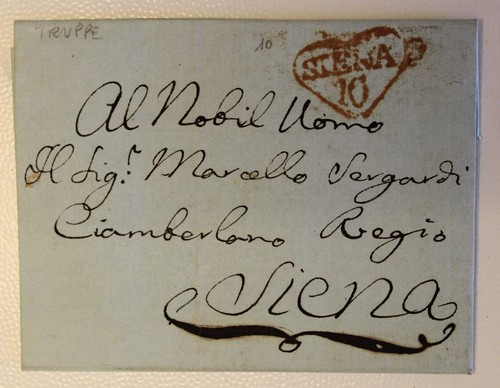 TRUPPE
10
SIENA
10
Al Nobil Uomo
Il Sig.r Marcello Sergardi
Ciamberlano Regio
Siena